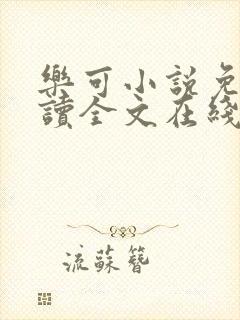 樂可小說免
讀全文在綫
流蘇簪